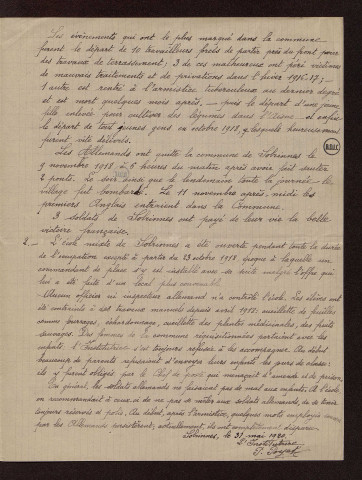 Les évènements qui ont le plus marqué dans la commune
furent le départ de 10 travailleurs forcés de partir près du front pour
des travaux de terrassement ; 3 de ces malheureux ont péri victimes
de mauvais traitements et de privations dans l'hiver 1916-17 ;
1 autre est rentré à l'armistice tuberculeux au dernier degré
et est mort quelques mois après, — puis le départ d'une jeune
fille enlevée pour cultiver des légumes dans l'Aisne — et enfin
le départ de tous jeunes gens en octobre 1918, lesquels heureusement
furent vite délivrés.
Les Allemands ont quitté la commune de Solrinnes le
9 novembre 1918 à 9 heures du matin après avoir fait sauter
2 ponts. Le soir ainsi que le lendemain toute la journée le
village fut bombardé. Le 11 novembre après-midi les
premiers Anglais entraient dans la Commune.
3 soldats de Solrinnes ont payé de leur vie la belle
victoire française.
2. — L'école mixte de Solrinnes a été ouverte pendant toute la durée
de l'occupation excepté à partir du 23 octobre 1918 jusque à laquelle un
commandant de place s'y est installé avec sa suite malgré l'offre qui
lui a été faite d'un local plus convenable.
Aucun officier ni inspecteur allemand n'a contrôlé l'école. Les élèves ont
été contraints à ces travaux manuels depuis avril 1918 : cueillette de feuilles
comme fourrages, échardonnage, cueillette des plantes médicinales, des fruits
sauvages. Des femmes de la commune réquisitionnées partaient avec les
enfants. L'Institutrice s'est toujours refusée à les accompagner. Au début
beaucoup de parents refusèrent d'envoyer leurs enfants les jours de classe ;
ils y furent obligés par le Chef de poste qui menaçait d'amende et de prison.
En général, les soldats allemands ne faisaient pas de mal aux enfants. A l'école
on recommandait à ceux-ci de ne pas se mêler aux soldats allemands, de se tenir
toujours réservés et polis. Au début, après l'armistice, quelques mots employés
par les Allemands persistèrent ; actuellement, ils ont complètement disparu.
Solrinnes, le 31 mai 1920.
L'Institutrice